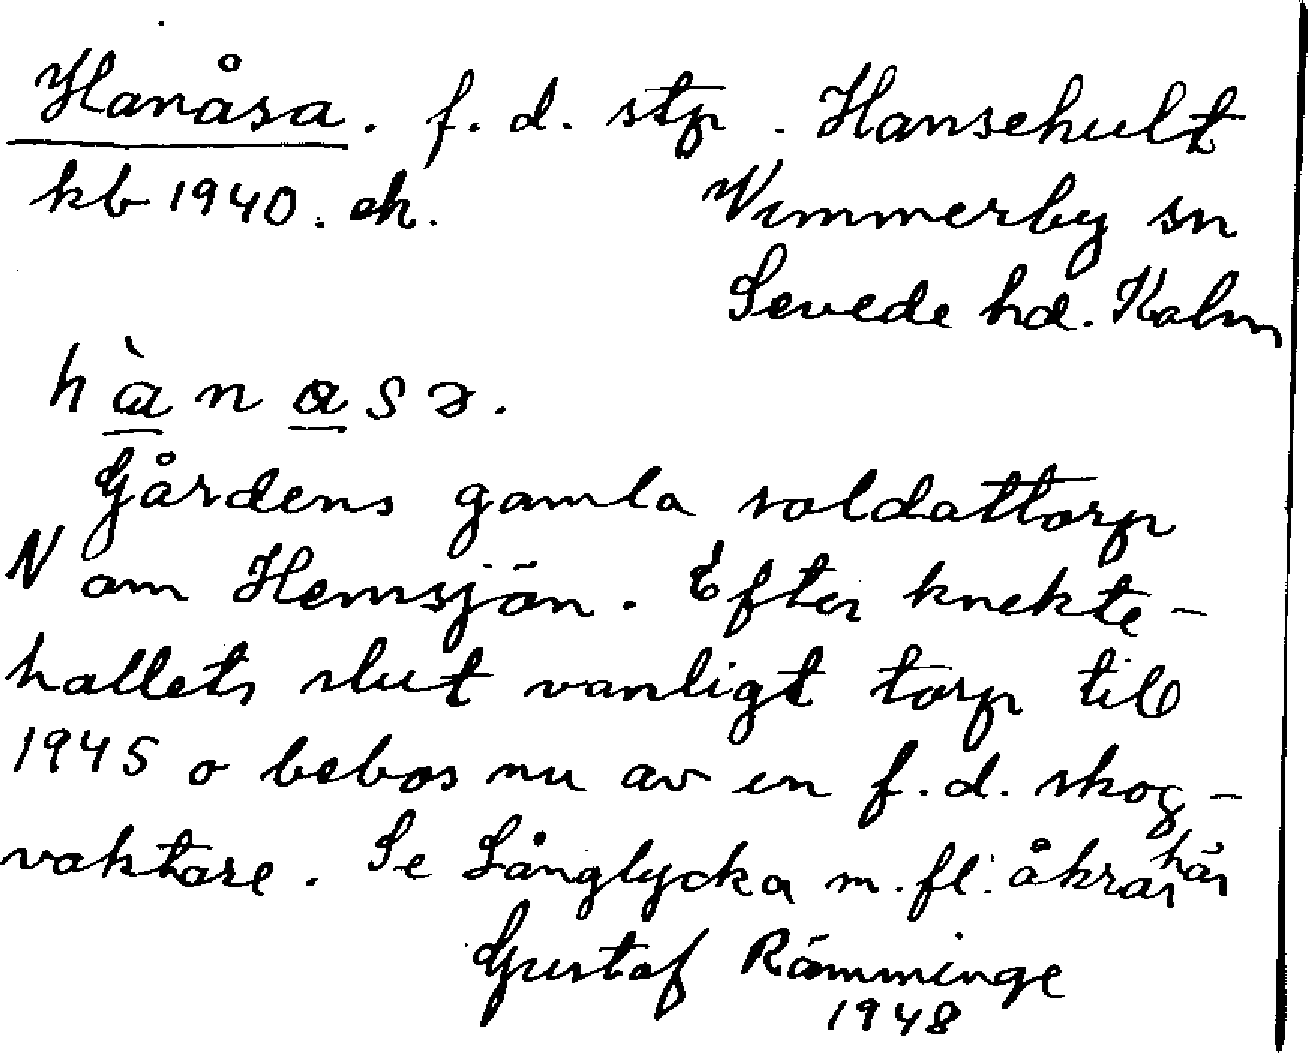 Hanåsa. f. d. stp. Hansehult
kb 1940. ek. Vimmerby sn
Sevede hd. Kalm
hànasə.
Gårdens gamla soldattorp
N om Hemsjön. Efter knekte-
hallets slut vanligt torp till
1945 o bebos nu av en f. d. skog-
vaktare. Se Långlycka m. fl. åkrar här
Gustaf Rämminge
1948